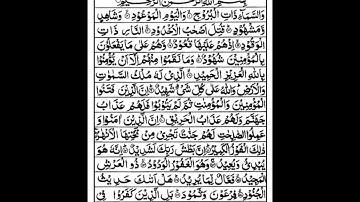 بِسْمِ اللّٰهِ الرَّحْمٰنِ الرَّحِيْمِ
وَالسَّمَآءِ ذَاتِ الْبُرُوْجِ ۙ وَالْيَوْمِ الْمَوْعُوْدِ ۙ وَشَاهِدٍ
وَّمَشْهُوْدٍ ۗ قُتِلَ اَصْحٰبُ الْاُخْدُوْدِ ۙ النَّارِ ذَاتِ
الْوَقُوْدِ ۙ اِذْ هُمْ عَلَيْهَا قُعُوْدٌ ۙ وَّهُمْ عَلٰى مَا يَفْعَلُوْنَ
بِالْمُؤْمِنِيْنَ شُهُوْدٌ ۗ وَمَا نَقَمُوْا مِنْهُمْ اِلَّآ اَنْ يُّؤْمِنُوْا
بِاللّٰهِ الْعَزِيْزِ الْحَمِيْدِ ۙ الَّذِيْ لَهٗ مُلْكُ السَّمٰوٰتِ
وَالْاَرْضِ ۗ وَاللّٰهُ عَلٰى كُلِّ شَيْءٍ شَهِيْدٌ ۗ اِنَّ الَّذِيْنَ فَتَنُوا
الْمُؤْمِنِيْنَ وَالْمُؤْمِنٰتِ ثُمَّ لَمْ يَتُوْبُوْا فَلَهُمْ عَذَابُ
جَهَنَّمَ وَلَهُمْ عَذَابُ الْحَرِيْقِ ۗ اِنَّ الَّذِيْنَ اٰمَنُوْا وَ
عَمِلُوا الصّٰلِحٰتِ لَهُمْ جَنّٰتٌ تَجْرِيْ مِنْ تَحْتِهَا الْاَنْهٰرُ
ذٰلِكَ الْفَوْزُ الْكَبِيْرُ ۗ اِنَّ بَطْشَ رَبِّكَ لَشَدِيْدٌ ۗ اِنَّهٗ هُوَ
يُبْدِئُ وَيُعِيْدُ ۚ وَهُوَ الْغَفُوْرُ الْوَدُوْدُ ۙ ذُو الْعَرْشِ
الْمَجِيْدُ ۙ فَعَّالٌ لِّمَا يُرِيْدُ ۗ هَلْ اَتٰىكَ حَدِيْثُ
الْجُنُوْدِ ۙ فِرْعَوْنَ وَثَمُوْدَ ۗ بَلِ الَّذِيْنَ كَفَرُوْا فِيْ